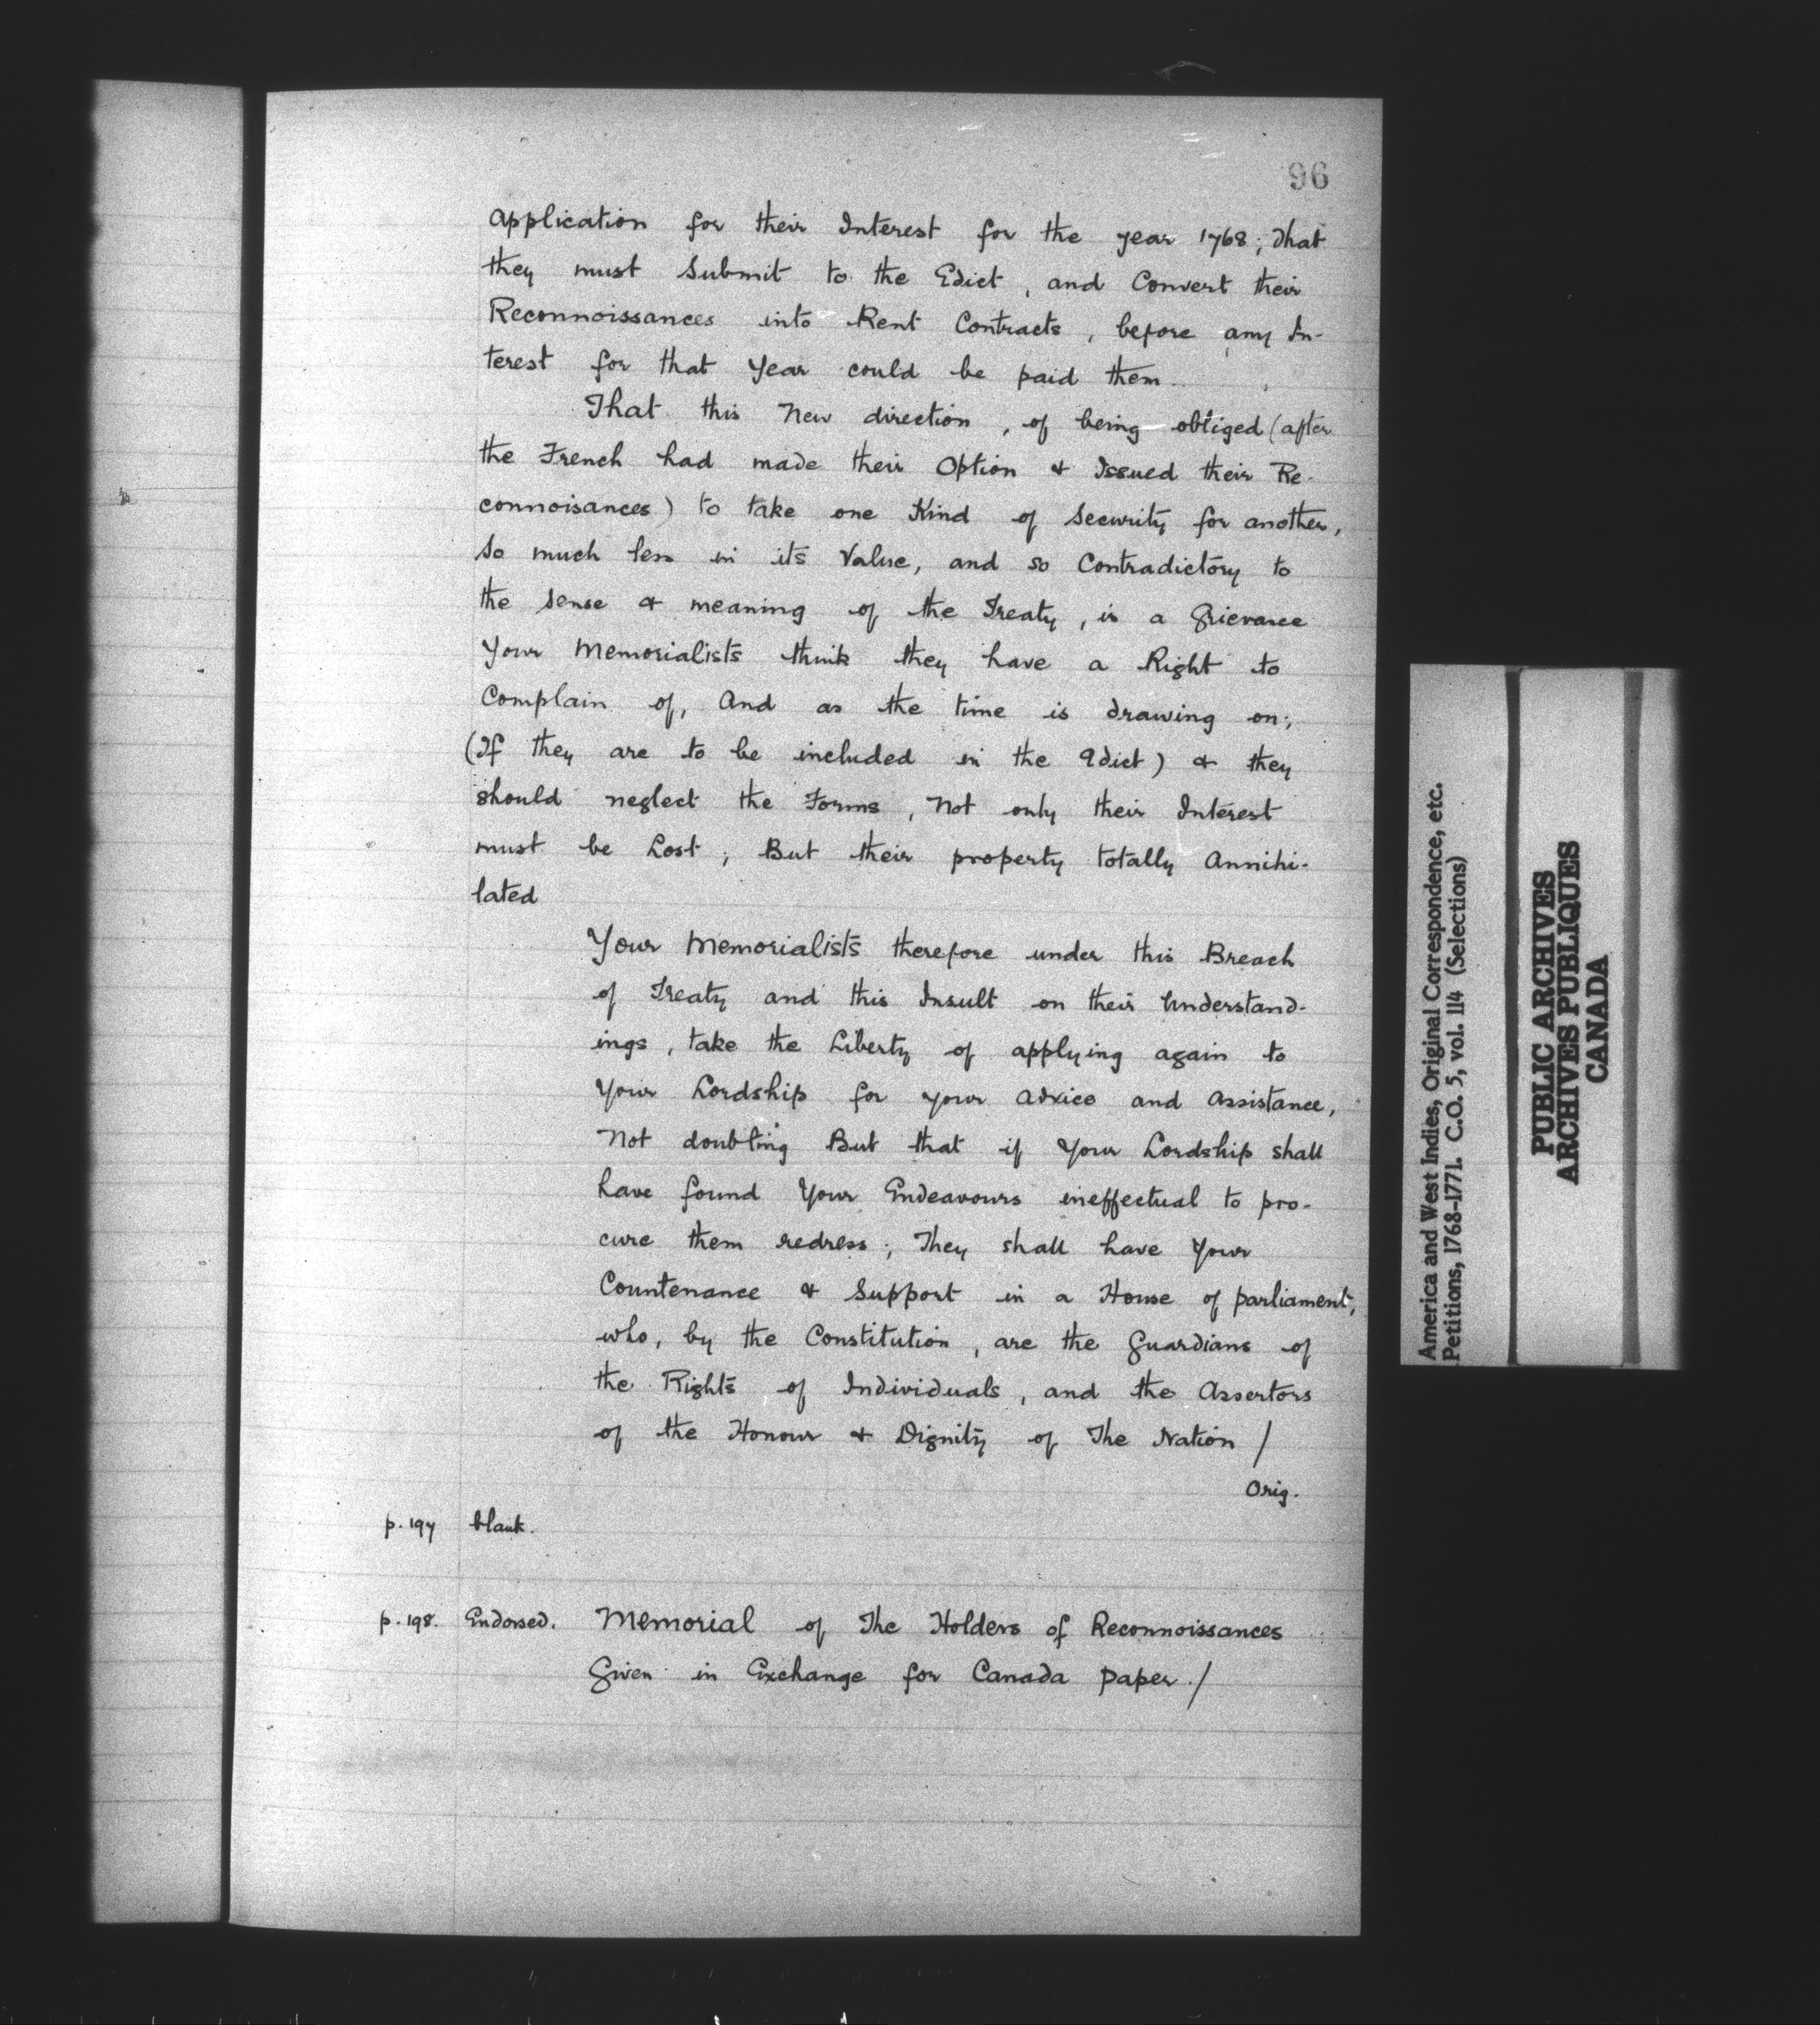 96
application for their Interest for the year 1768; That
they must Submit to the Edict, and Convert their
Reconnoissances into Rent Contracts, before any In-
terest for that Year could be paid them.
That this New direction, of being obliged (after
the French had made their Option & Issued their Re-
connoisances) to take one Kind of Security for another,
So much less in its Value, and so Contradictory to
the Sense & meaning of the Treaty, is a Grievance
Your Memorialists think they have a Right to
Complain of, And as the time is drawing on;
(If they are to be included in the Edict) & they
should neglect the Forms, Not only their Interest
must be Lost; But their property totally Annihi-
lated
Your Memorialists therefore under this Breach
of Treaty and this Insult on their Understand-
ings, take the Liberty of applying again to
Your Lordship for your Advice and Assistance,
Not doubting But that if Your Lordship shall
have found Your Endeavours ineffectual to pro-
cure them redress; They shall have Your
Countenance & Support in a House of parliament,
who, by the Constitution, are the Guardians of
the Rights of Individuals, and the Assertors
of the Honour & Dignity of The Nation /
Orig.
p. 197 blank.
p. 198. Endorsed. Memorial of The Holders of Reconnoissances
Given in Exchange for Canada paper. /
America and West Indies, Original Correspondence, etc.
Petitions, 1768-1771. C.O. 5, vol. 114 (Selections)
PUBLIC ARCHIVES
ARCHIVES PUBLIQUES
CANADA